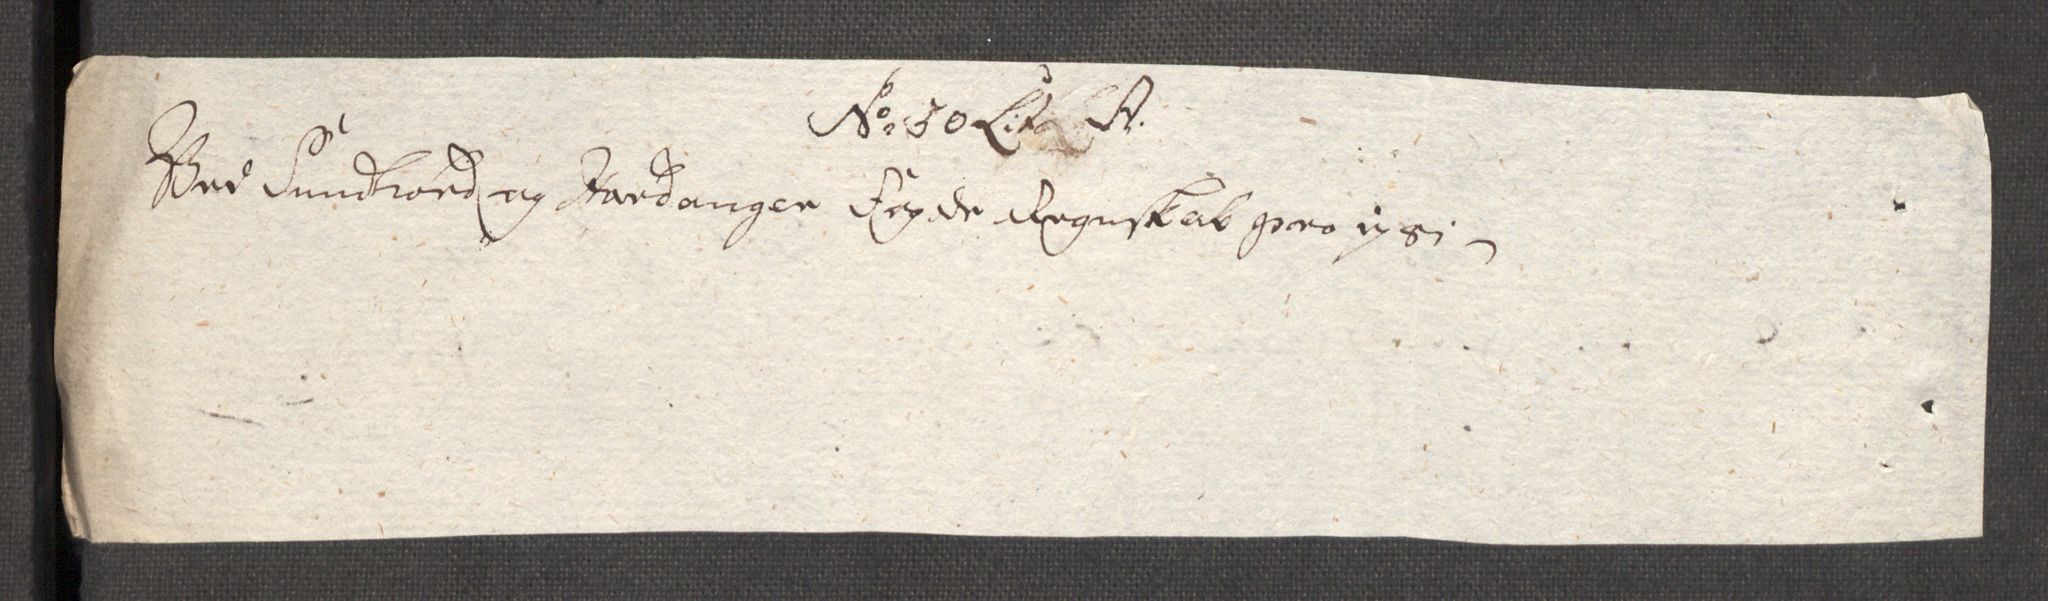 No: 50 Lit A.
Ved Sundhord og Hardanger Fogde Regnskab pro 1781